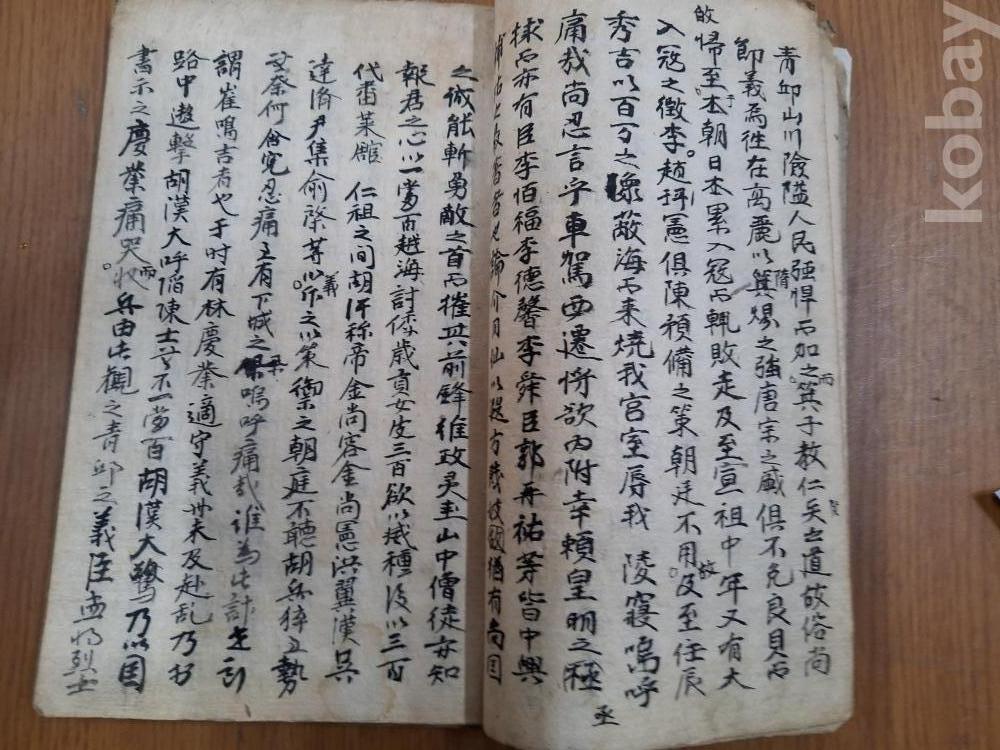 青邱山川險隘人民强悍而加之箕子教仁矣之道故俗尚
節義爲徃在高麗以隋煬之強唐宗之威俱不免良貝而
敀帰至于本朝日本累入寇而輒敗走及至宣祖中年又有大
入寇之徵李趙珥憲俱陳預備之策朝廷不用故及至任辰
秀吉以百万之蔽海而来燒我宮室辱我 陵寢嗚呼
痛哉尚忍言乎車駕西遷將欲内附幸賴皇明之極
捄而亦有臣李恒福李德馨李舜臣郭再祐等皆中興
丞
有尚国
之誠能斬勇敵之首而摧其前鋒惟政灵圭山中僧徒亦知
報君之心以一當百越海討倭歲貢女皮三百欲以滅種後以三百
代番萊舘 仁祖之间胡汗称帝金尚容金尚憲洪翼漢吳
達濟尹集俞棨等以義斥之以策禦之朝庭不聽胡兵猝至勢
奈何含寃忍痛至有下城之嗚呼痛哉誰為此計
謂崔鳴吉者也于时有林慶業適守義州未及赴乱乃
路中邀擊胡漢大呼陷陳士卒一當百胡漢大驚乃以国
書示之慶業痛哭而收兵由此觀之青邱之義臣烈士
kobay